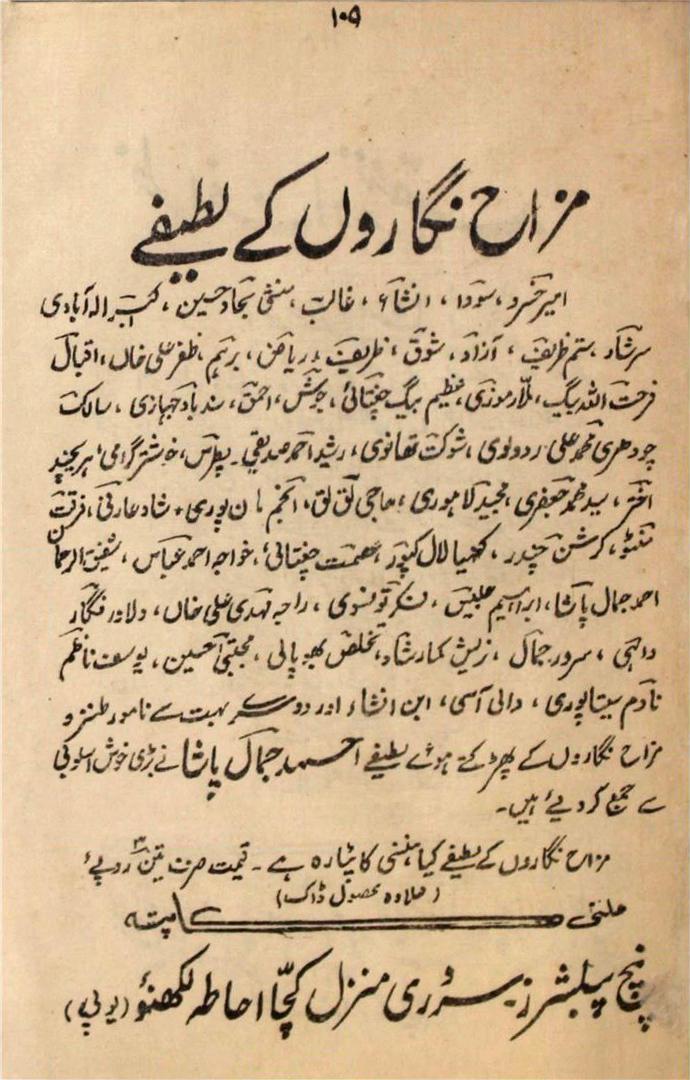 ۱۰۵
مزاح نگاروں کے لطیفے
امیر خسرو، سودا، انشاء، غالب، منشی سجاد حسین، اکبر الہ آبادی
سرشار، ستم ظریف، آزاد، شوق، ظریف، ریاض، برہم، ظفر علی خاں، اقبال
فرحت اللہ بیگ، ملا رموزی، عظیم بیگ چغتائی، جوش، احمق، سندباد جہازی، سالک
چودھری محمد علی ردولوی، شوکت تھانوی، رشید احمد صدیقی، پطرس، خوشتر گرامی، ہریچند
اختر، سید محمد جعفری، مجید لاہوری، حاجی لق لق، انجم مان پوری، شاد عارفی، فرقت
منٹو، کرشن چندر، کنھیا لال کپور، عصمت چغتائی، خواجہ احمد عباس، شفیق الرحمان
احمد جمال پاشا، ابراہیم جلیس، فکر تونسوی، راجہ مہدی علی خاں، دلاور فگار
واہی، سرور جمال، نریش کمار شاد، تخلص بھوپالی، مجتبیٰ حسین، یوسف ناظم
نادم سیتاپوری، والی آسی، ابن انشاء اور دوسرے بہت سے نامور طنز و
مزاح نگاروں کے پھڑکتے ہوئے لطیفے احمد جمال پاشا نے بڑی خوش اسلوبی
سے جمع کر دیے ہیں۔
مزاح نگاروں کے لطیفے کیا ہنسی کا پٹارہ ہے۔ قیمت صرف تین ۳ روپیے
(علاوہ محصول ڈاک)
ملنے کا پتہ
پنچ پبلشرز سروری منزل کچا احاطہ لکھنؤ (یوپی)